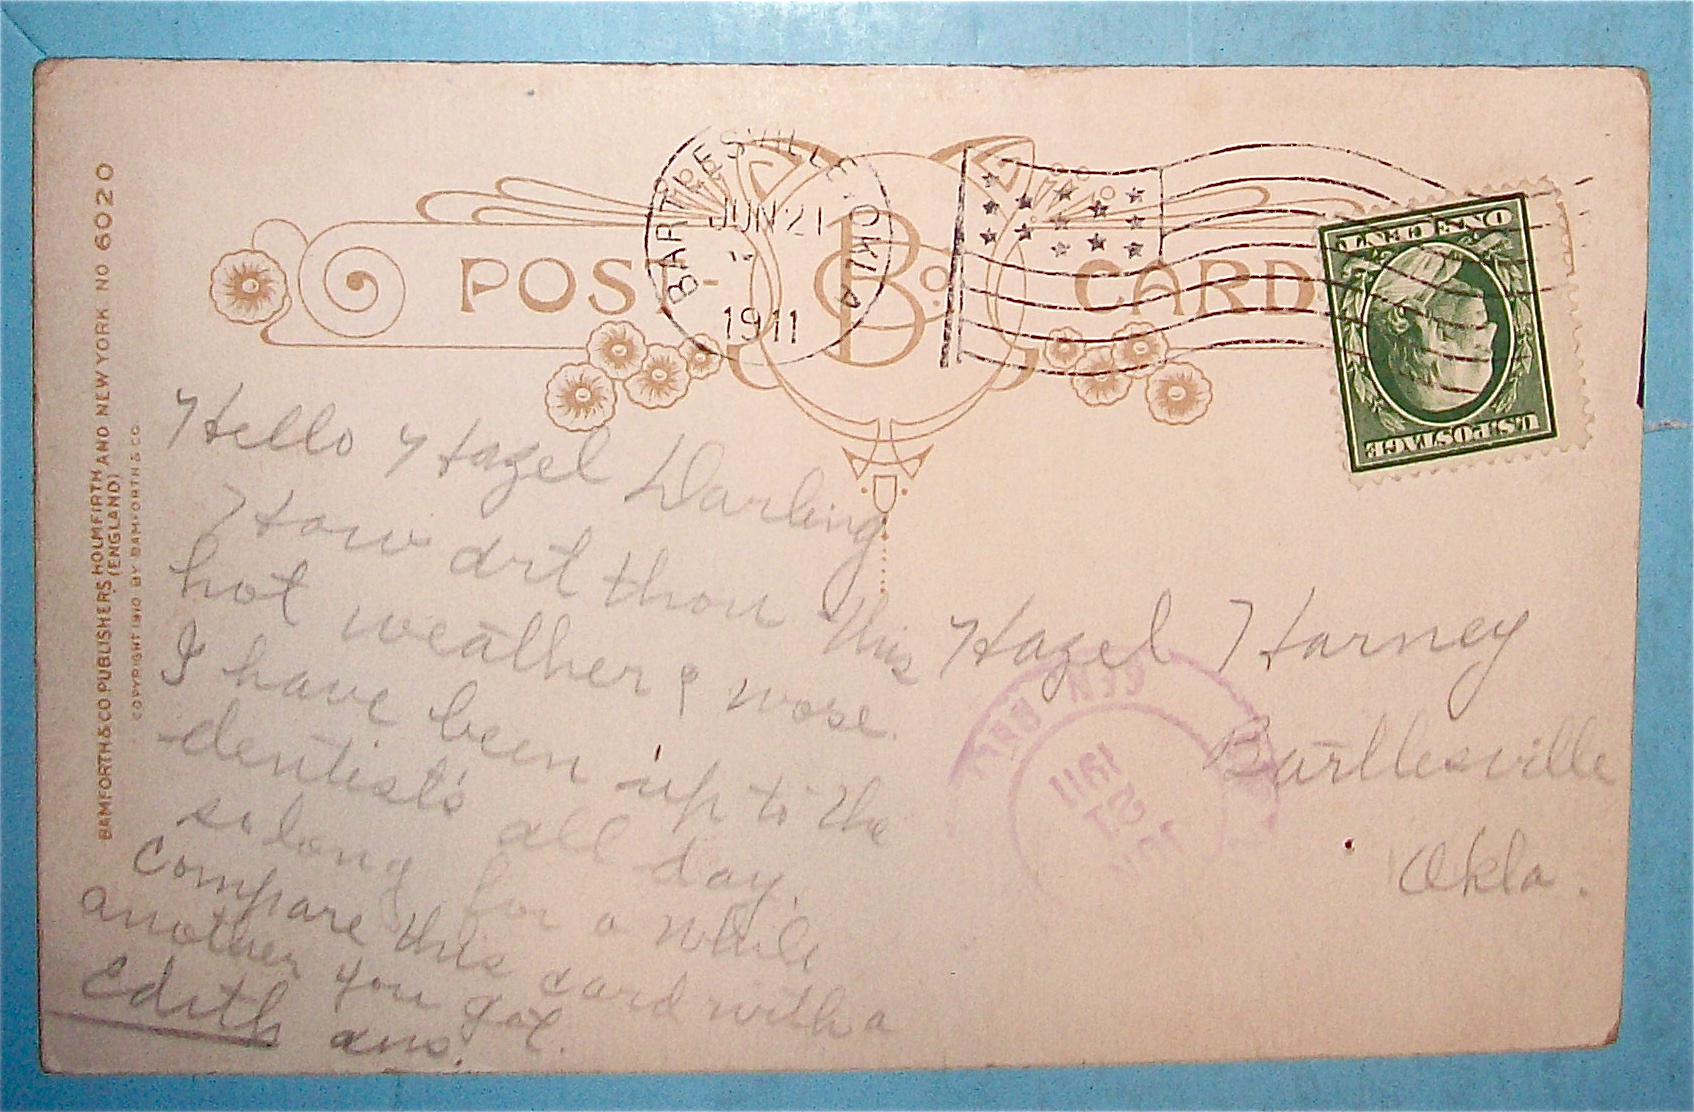 BAMFORTH & CO PUBLISHERS HOLMFIRTH (ENGLAND) AND NEW YORK NO 6020
COPYRIGHT 1910 BY BAMFORTH & CO.
POST-CARD
B Co
BARTLESVILLE · OKLA
JUN 21
1911
ONE CENT
U.S. POSTAGE
Hello Hazel Darling
How art thou this
hot weather? worse.
I have been up to the
dentist's all day.
so long for a while
Compare this card with a
another you got.
Edith ans.
Hazel Harney
Bartlesville
Okla.
GEN DEL
JUN
21
1911